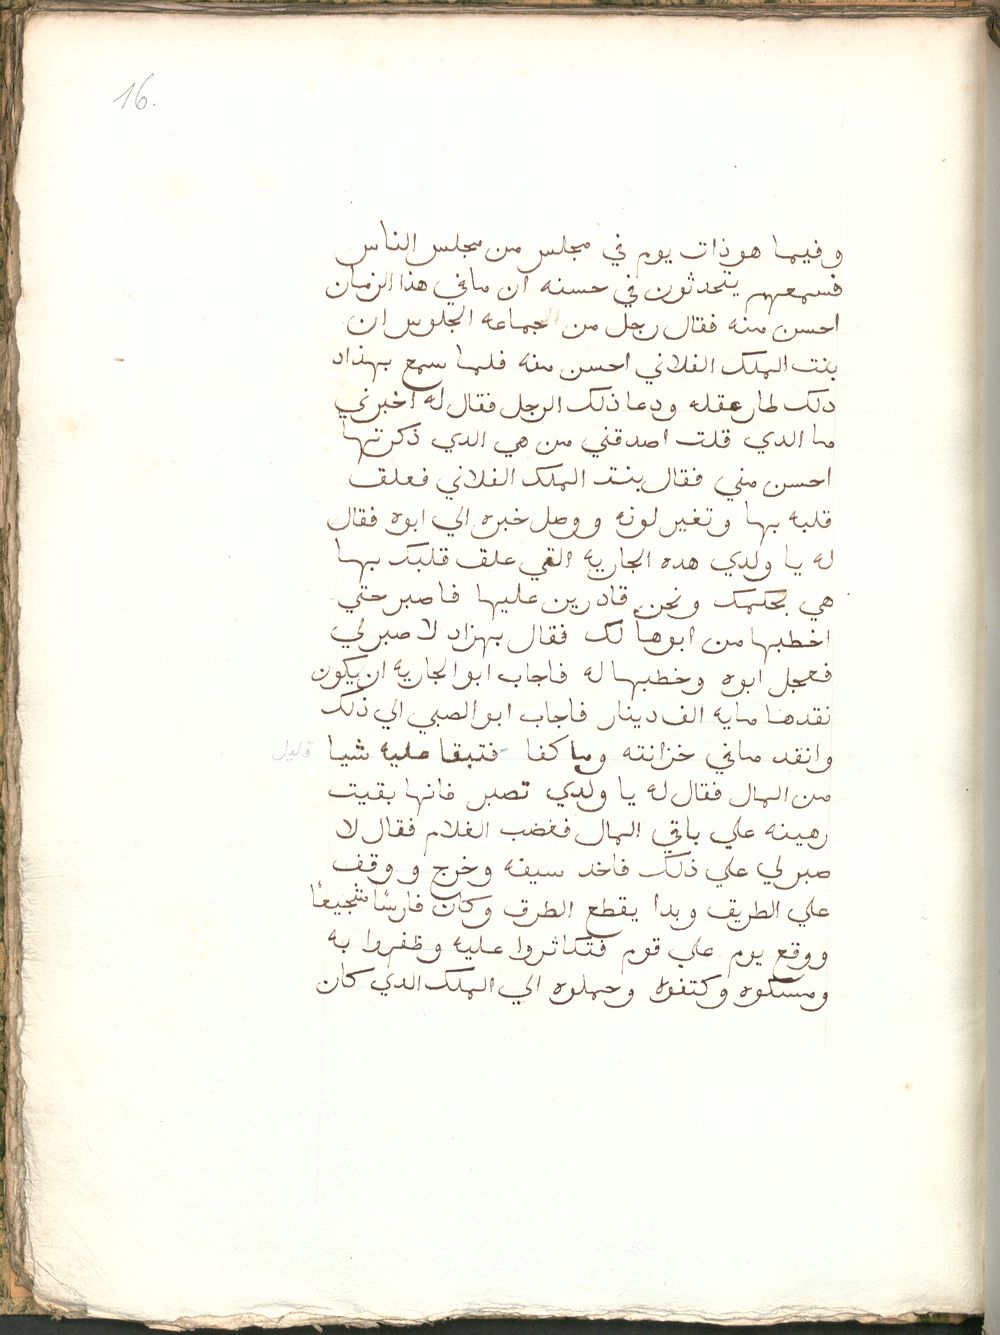 16.
وفيما هو ذات يوم في مجلس من مجلس الناس
فسمعهم يتحدثون في حسنه ان مافي هذا الزمان
احسن منه فقال رجل من الجماعه الجلوس ان
بنت الملك الفلاني احسن منه فلما سمع بهذاد
دلك طار عقله ودعا ذلك الرجل فقال له اخبرني
ما الدي قلت اصدقني من هي الدي ذكرتها
احسن مني فقال بنت الملك الفلاني فعلق
قلبه بها وتغير لونه ووصل خبره الي ابوه فقال
له يا ولدي هده الجاريه التي علق قلبك بها
هي بحكمك ونحن قادرين عليها فاصبر حتي
اخطبها من ابوها لك فقال بهزاد لا صبر لي
فعجل ابوه وخطبها له فاجاب ابو الجاريه ان يكون
نقدها مايه الف دينار فاجاب ابو الصبي الي ذلك
وانقد مافي خزانته وما كفا فتبقا عليه شيا قليل
من المال فقال له يا ولدي تصبر فانها بقيت
رهينه علي باقي المال فغضب الغلام فقال لا
صبر لي علي ذلك فاخد سيفه وخرج ووقف
علي الطريق وبدا يقطع الطرق وكان فارسًا شجيعًا
ووقع يوم علي قوم فتكاثروا عليه وظفروا به
ومسكوه وكتفوه وحملوه الي الملك الدي كان